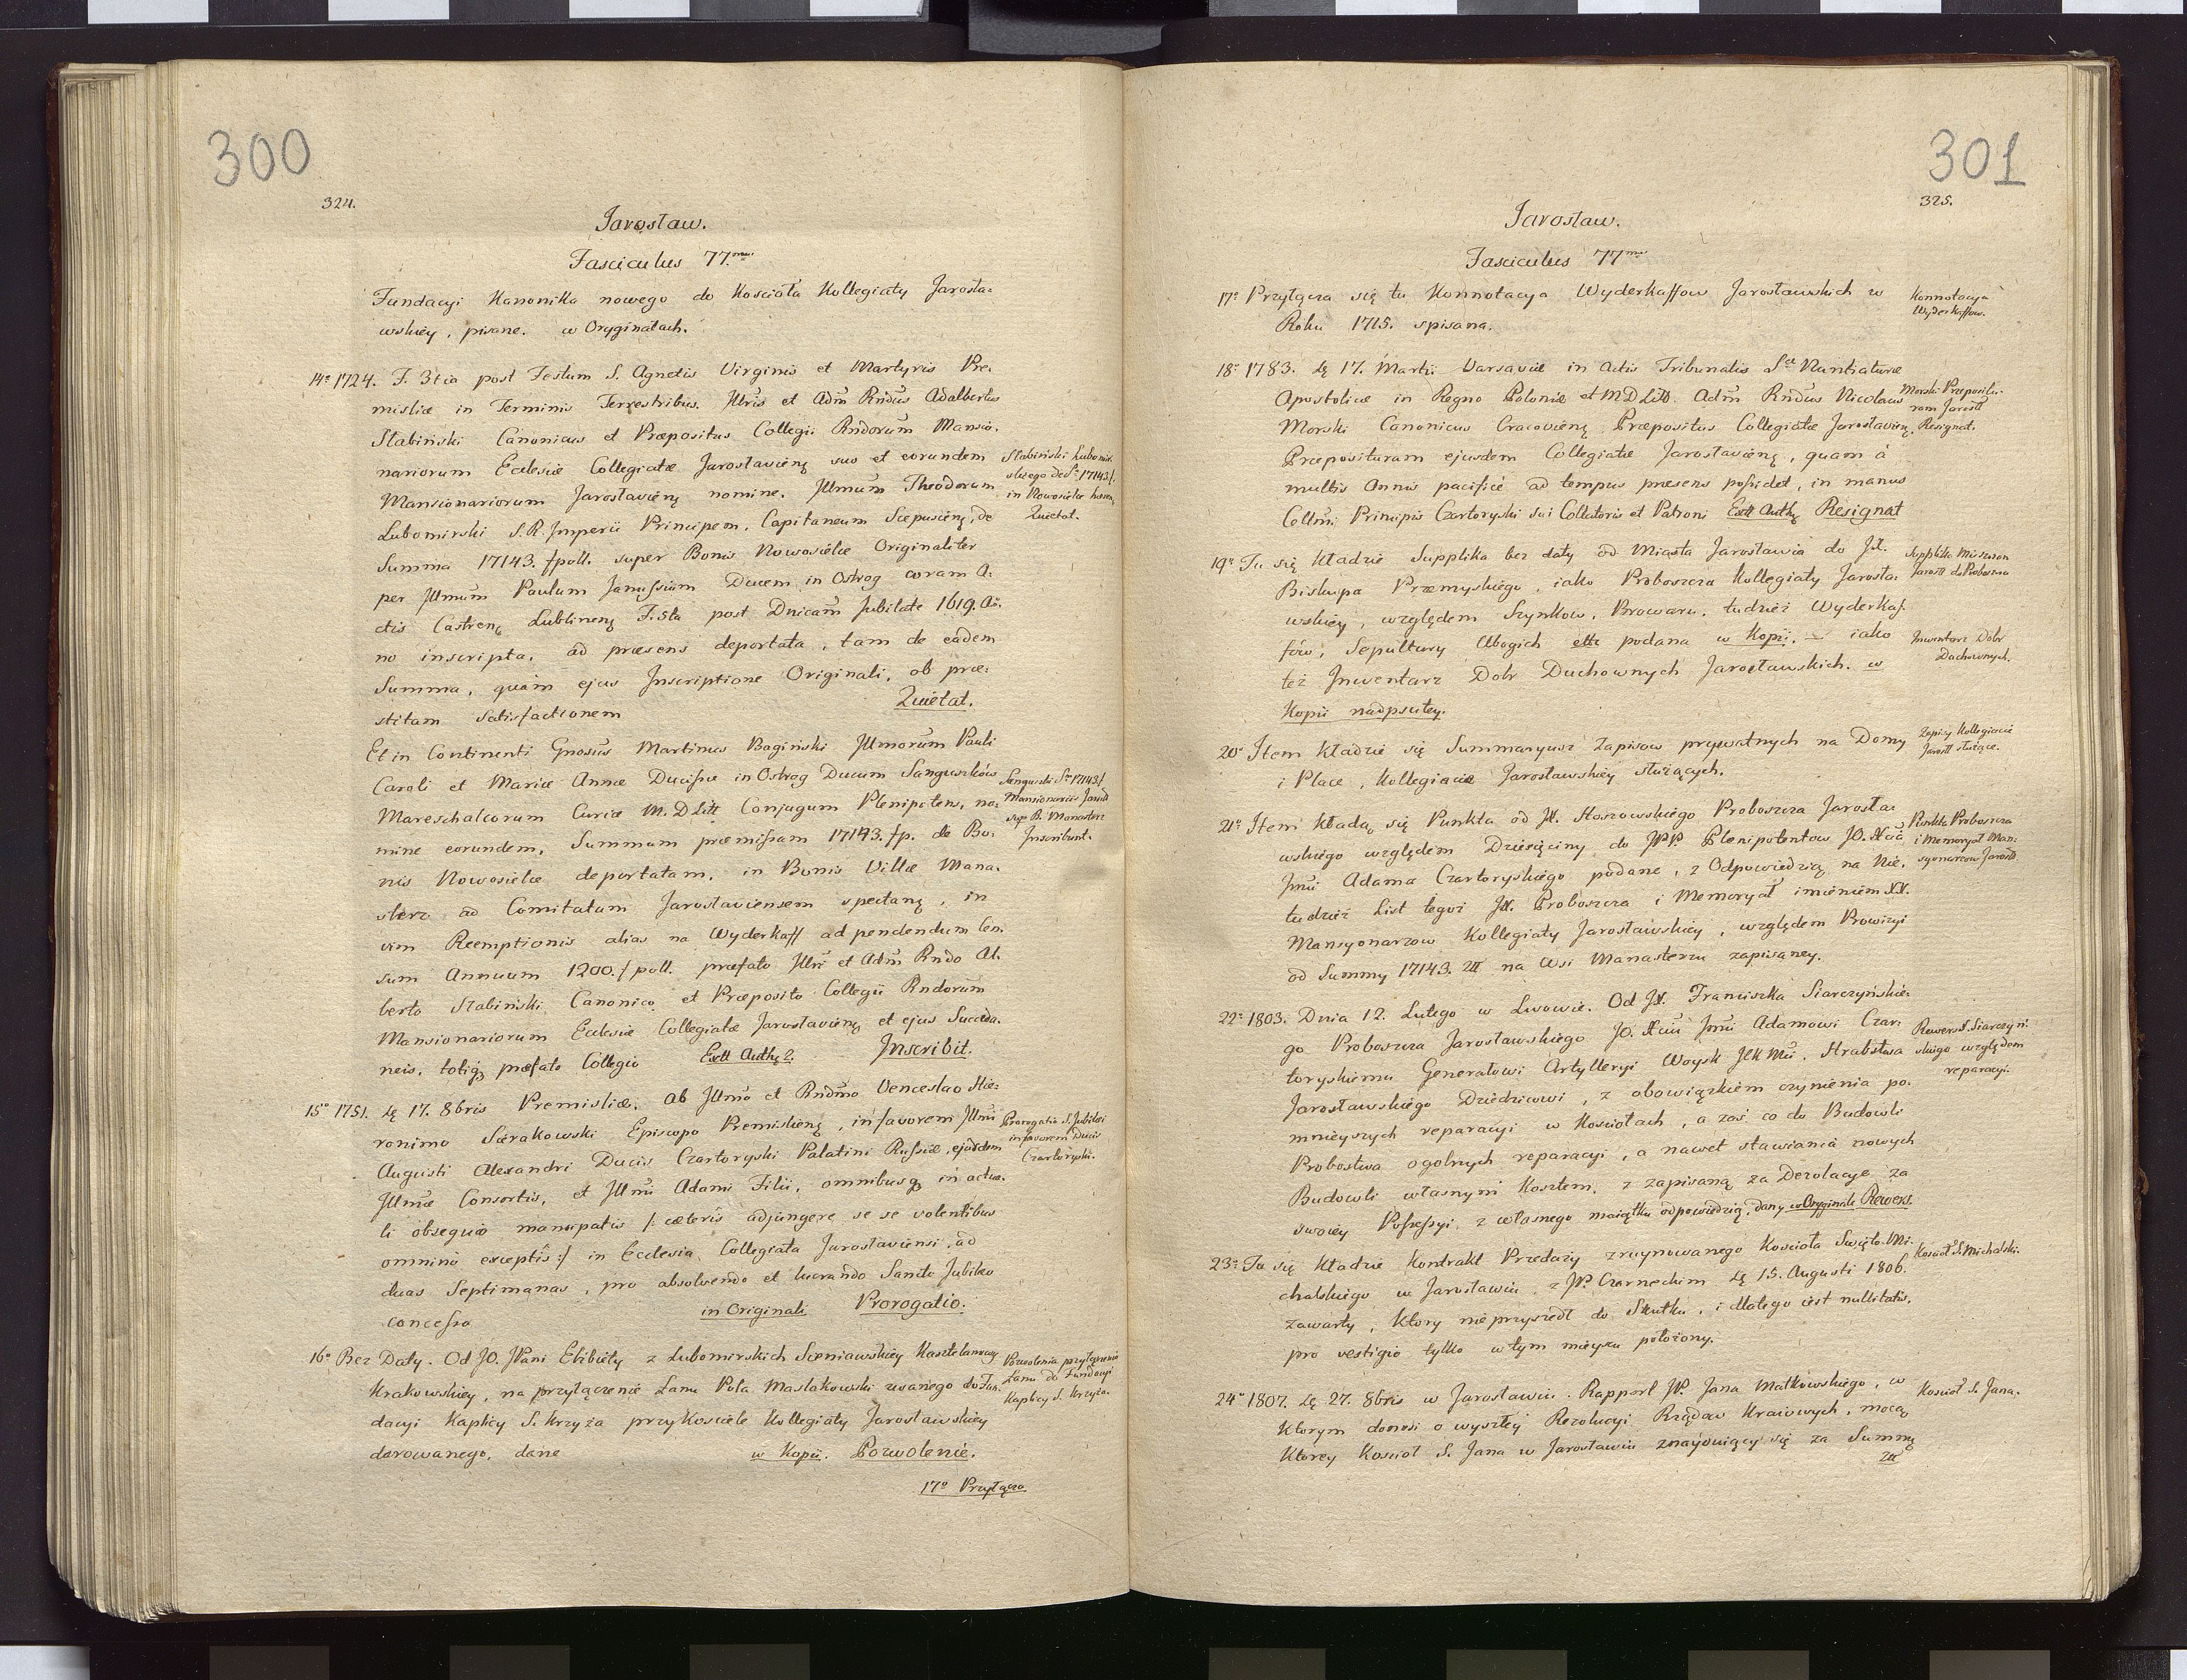 300
324.
Jarosław.
Fasciculus 77.mus
Fundacyi Kanonika nowego do Kościoła Kollegiaty Jarosła=
wskiey, pisane. w Oryginałach.
14o 1724. F. 3tia post Festum S. Agnetis Virginis et Martyris Pre.
misliæ in Terminis Terrestribus. Illris et Adm Rndus Adalbertus
Słabiński Canonicus et Præpositus Collegii Rndorum Mansio.
nariorum Ecclesiæ Collegiatæ Jaroslavieng suo et eorundem
Mansionariorum Jaroslavieng nomine. Illmum Theodorum
Lubomirski S. R. Imperii Principem, Capitaneum Scepusieng, de
Summa 17143. fpoll. super Bonis Nowosielce Originaliter
per Illmum Paulum Janussium Ducem in Ostrog coram A:
ctis Castreng Lublineng F. 5ta post Dnicam Jubilate 1619. An.
no inscripta, ad præsens deportata, tam de eadem
Summa, quam ejus Inscriptione Originali, ob præ:
stitam satisfactionem Quietat.
Słabiński Lubomir.
skiego de Sa 17143 f.
in Nowosielce
Quietat.
Et in Continenti Gnosus Martinus Bagiński Illmorum Pauli
Caroli et Mariæ Annæ Ducissæ in Ostrog Ducum Sanguszków
Mareschalcorum Curiæ M. D Litt Conjugum Plenipotens, no:
mine eorundem, Summam præmissam 17143. fp. de Bo:
nis Nowosielce deportatam, in Bonis Villæ Mana.
sterz ad Comitatum Jaroslaviensem spectang, in
vim Reemptionis alias na Wyderkaff ad pendendum Cen.
sum Annuum 1200. f poll. præfato Illri et Adm Rndo Al.
berto Słabiński Canonico et Præposito Collegii Rndorum
Mansionariorum Ecclesiæ Collegiatæ Jaroslavieng et ejus Succeda.
neis, totiq præfato Collegio Extt Authg 2. Inscribit.
Sanguszki Sm 17143 f
Mansionariis Jarosł
sup B. Manasterz
Inscribunt.
15o 1751. dę 17. 8bris Premisliæ. Ab Illmo et Rndmo Venceslao Hie:
ronimo Sierakowski Episcopo Premislieng, in favorem Illmi
Augusti Alexandri Ducis Czartoryski Palatini Russiæ, ejusdem
Illmæ Consortis, et Illmi Adami Filii, omnibusq in actua.
li obsequio mancipatis /: cæteris adjungere se se volentibus
omnino exceptis :/ in Ecclesia Collegiata Jaroslaviensi, ad
duas Septimanas, pro absolvendo et lucrando Sancto Jubilæo
concessa in Originali Prorogatio.
Prorogatio S. Jubilæi
in favorem Ducis
Czartoryski.
16o Bez Daty. Od JO. JPani Elżbiety z Lubomirskich Sieniawskiey Kasztelanowey
Krakowskiey, na przyłączenie Łanu Pola Maslakowski zwanego do Fun.
dacyi Kaplicy S. Krzyża przy Kościele Kollegiaty Jarosławskiey
darowanego, dane w Kopii. Pozwolenie.
Pozwolenia przyłączenia
Łanu do Fundacyi
Kaplicy S. Krzyża.
17o Przyłącza
301
325.
Jarosław.
Fasciculus 77mus
17o Przyłącza się tu Konnotacya Wyderkaffow Jarosławskich w
Roku 1715. spisana.
Konnotacya
Wyderkaffow.
18o 1783. dę 17. Martii Varsaviæ in Actis Tribunalis Sæ Nuntiaturæ
Apostolicæ in Regno Poloniæ et M D Litt. Adm Rndus Nicolaus
Morski Canonicus Cracovieng Præpositus Collegiatæ Jaroslavieng,
Præposituram ejusdem Collegiatæ Jaroslavieng, quam à
multis Annis pacificè ad tempus præsens possidet, in manus
Cellmi Principis Czartoryski sui Collatoris et Patroni Extt Authg Resignat
Morski Præpositu.
ram Jarosł
Resignat.
19o Tu się kładzie Supplika bez daty od Miasta Jarosławia do JX.
Biskupa Przemyskiego, iako Proboszcza Kollegiaty Jarosła:
wskiey, względem Szynkow, Browaru, tudzież Wyderkaf.
fów, Sepultury Ubogich ettc podana w Kopii. — iako
też Inwentarz Dobr Duchownych Jarosławskich. w
Kopii nadpsutey.
Supplika Mieszczan
Jarosł do Proboszcza
Inwentarz Dobr
Duchownych.
20o Item kładzie się Summaryusz Zapisow prywatnych na Domy
i Place, Kollegiacie Jarosławskiey służących.
Zapisy Kollegiacie
Jarosł służące.
21o Item kładą się Punkta od JX. Koszowskiego Proboszcza Jarosła:
wskiego względem Dziesięciny do JPP. Plenipotentow JO. Xcia
Jmci Adama Czartoryskiego podane, z Odpowiedzią na nie,
tudzież List tegoż JX. Proboszcza i Memoryał imieniem XX.
Mansyonarzow Kollegiaty Jarosławskiey, względem Prowizyi
od Summy 17143. Złł na Wsi Manasterzu zapisaney.
Punkta Proboszcza
i Memoryał Man:
syonarzow Jarosł.
22o 1803. Dnia 12. Lutego w Lwowie. Od JX. Franciszka Siarczyńskie:
go Proboszcza Jarosławskiego JO. Xciu Jmci Adamowi Czar:
toryskiemu Generałowi Artylleryi Woysk JCKMci. Hrabstwa
Jarosławskiego Dziedzicowi, z obowiązkiem czynienia po.
mnieyszych reparacyi w Kościołach, a zaś co do Budowli
Probostwa ogolnych reparacyi, a nawet stawiania nowych
Budowli własnym Kosztem, z zapisaną za Dezolacye za
swoiey Possessyi z własnego maiątku odpowiedzią, dany w Oryginale Rewers.
Rewers X. Siarczyń:
skiego względem
reparacyi.
23o Tu się kładzie Kontrakt Przedaży zruynowanego Kościoła Święto-Mi.
chalskiego w Jarosławiu z JP. Czarneckim dę 15. Augusti 1806.
zawarty, ktory nie przyszedł do Skutku, i dlatego iest nullitatis,
pro vestigio tylko w tym mieyscu położony.
Kościoł S. Michalski.
24o 1807. dę 27. 8bris w Jarosławiu. Rapport JP. Jana Małkowskiego, w
ktorym donosi o wyszłey Rezolucyi Rządow Kraiowych, mocą
ktorey Kościoł S. Jana w Jarosławiu znayduiący się za Summę
Złł
Kościoł S. Jana.